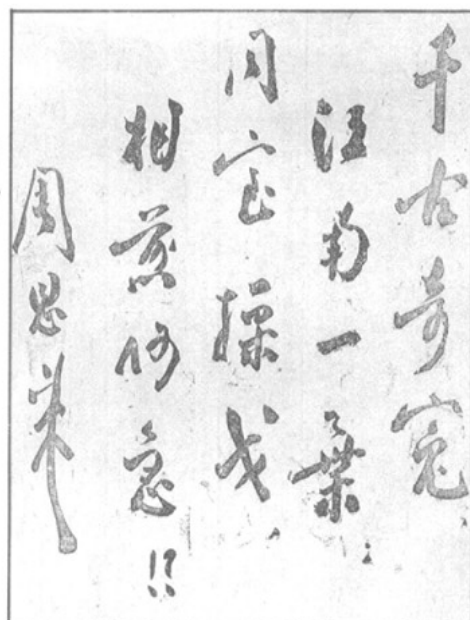 千古奇冤
江南一葉；
同室操戈，
相煎何急！？
周恩来